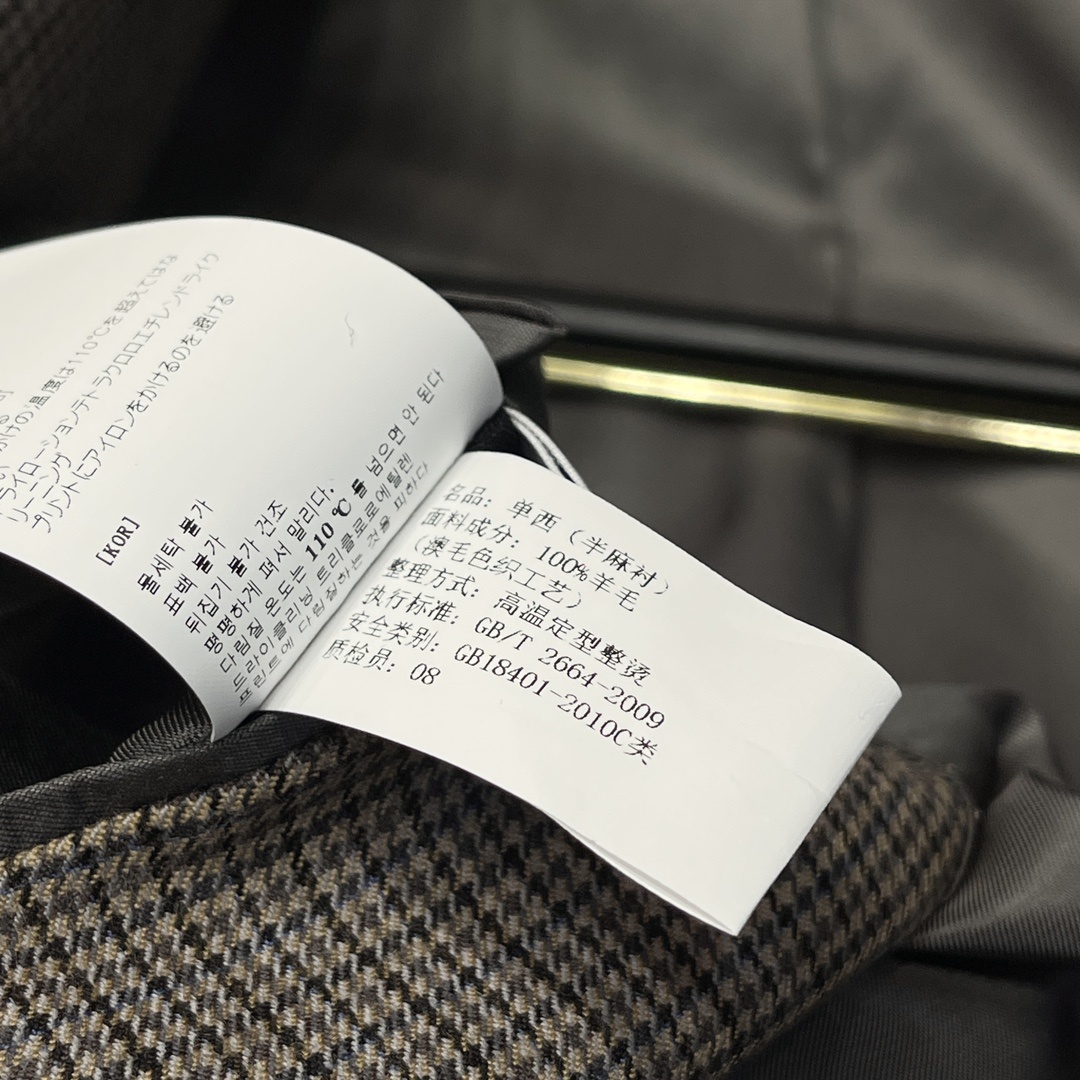 の温度は110℃を超えてはな
ライローションテトラクロロエチレンドライク
リーニング
プリントにアイロンをかけるのを避ける
[KOR]
물세탁 불가
표백 불가
뒤집기 불가 건조
평평하게 펴서 말리다.
다림질 온도는 110 ℃ 를 넘으면 안 된다
드라이클리닝 트리클로로에틸렌
프린트에 다림질하는 것을 피하다
名品: 单西（半麻衬）
面料成分: 100%羊毛
（澳毛色织工艺）
整理方式: 高温定型整烫
执行标准: GB/T 2664-2009
安全类别: GB18401-2010C类
质检员: 08